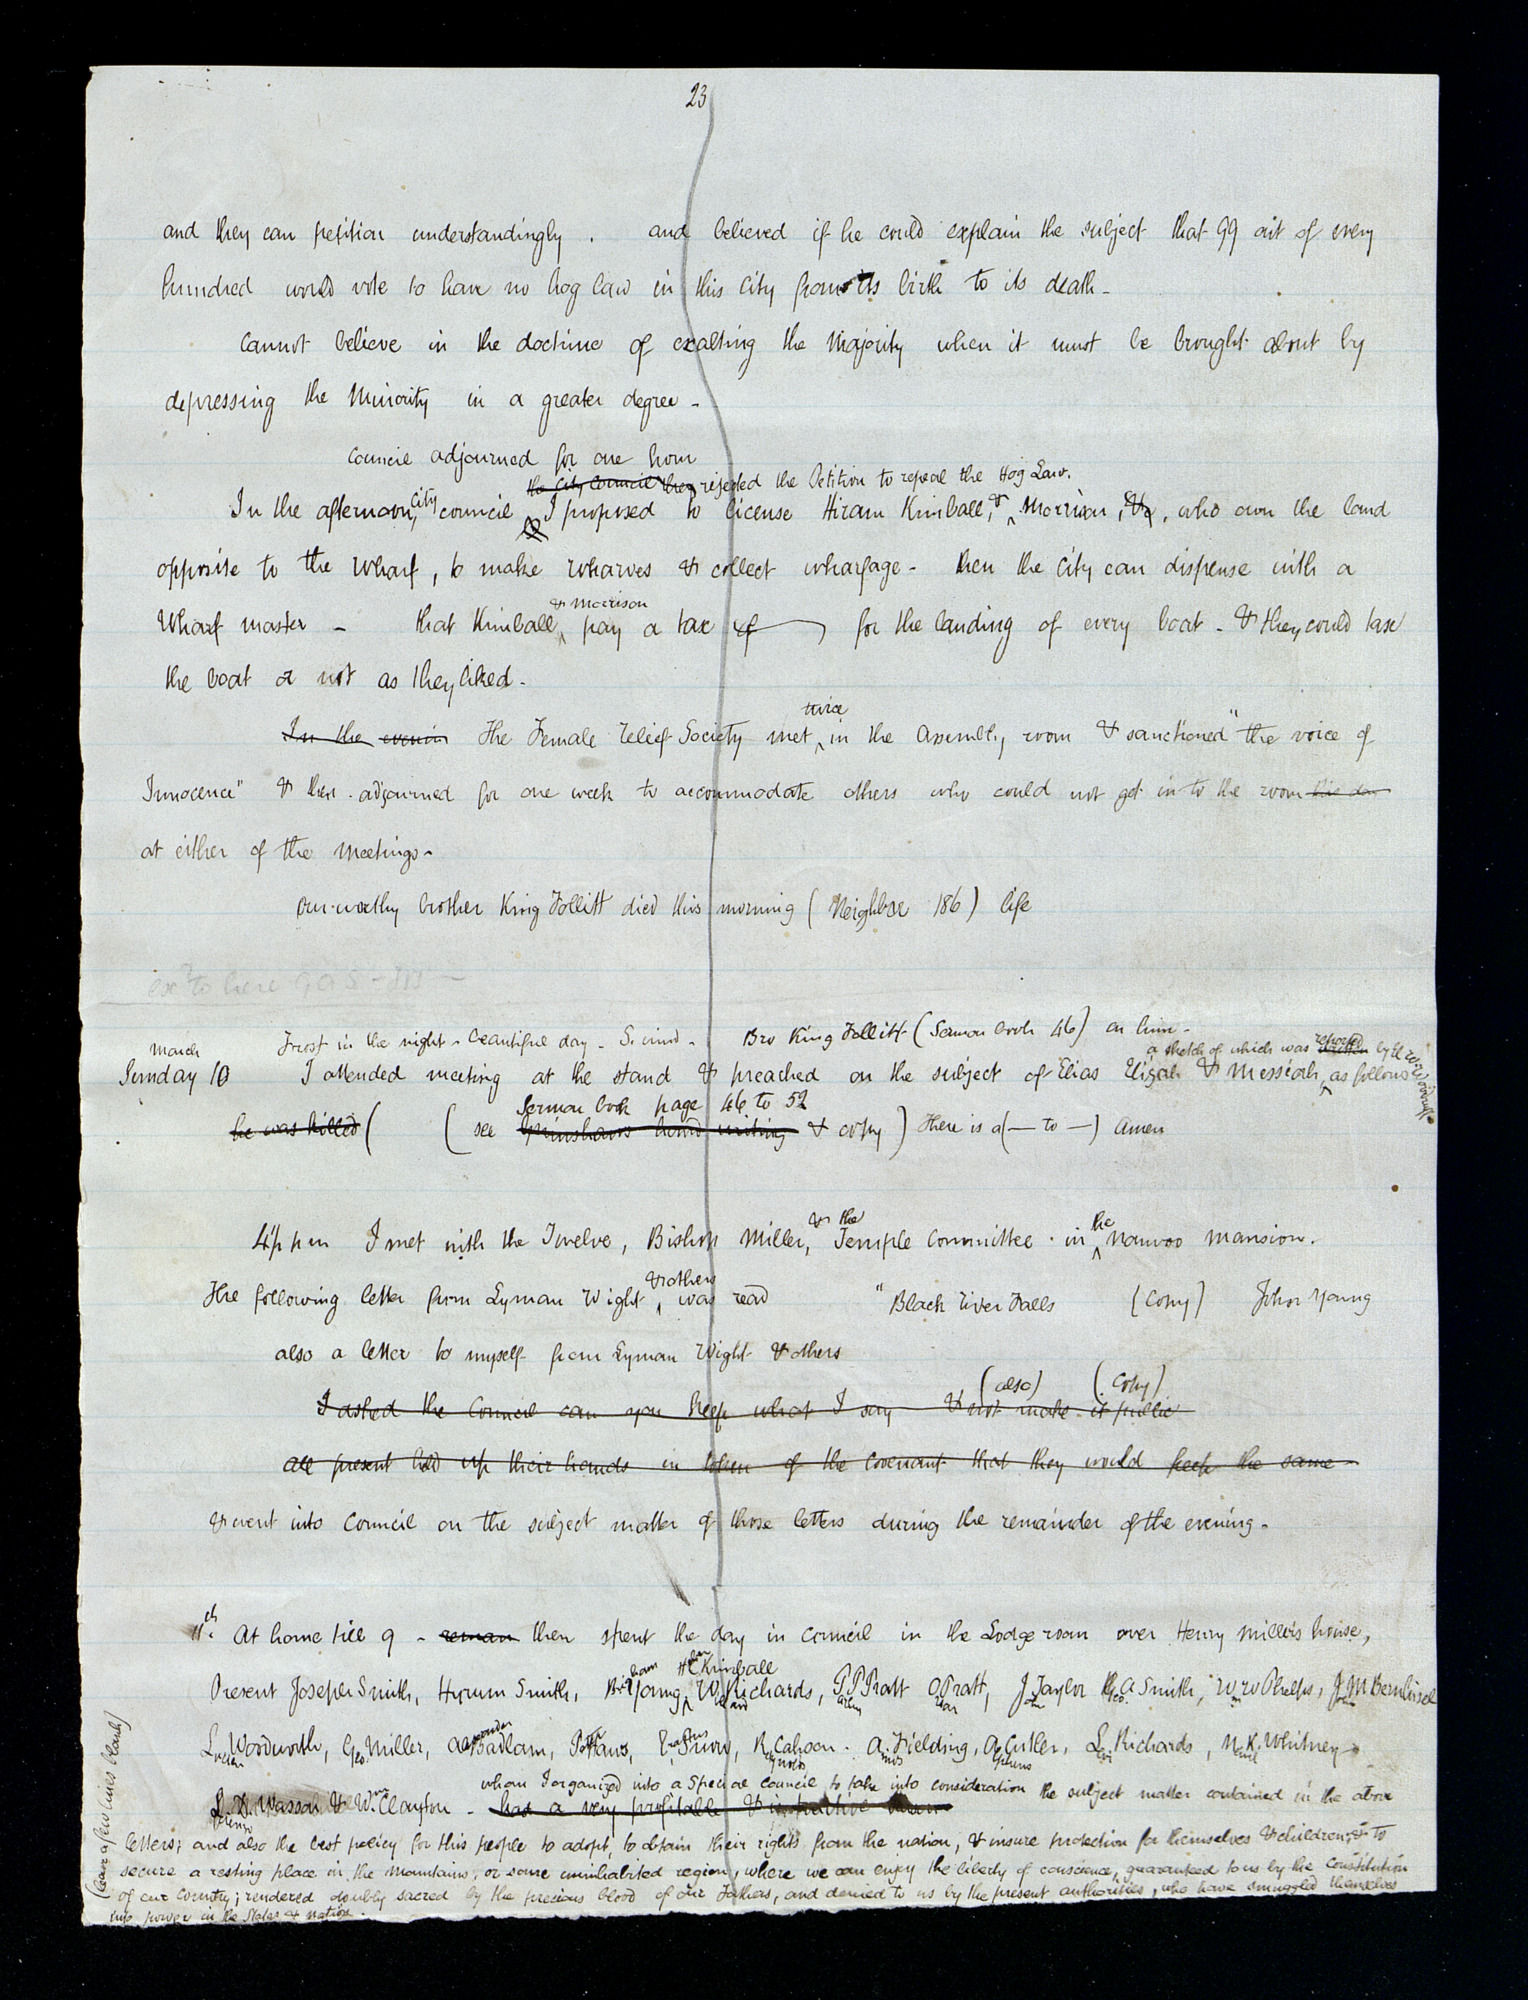 23
and they can petition understandingly . and believed if he could explain the subject that 99 out of every
hundred would vote to have no hog law in this City from its birth to its death –
Cannot believe in the doctrine of exalting the Majority when it must be brought about by
depressing the Minority in a greater degree –
Council adjourned for one hour
the City Council they rejected the Petition to repeal the Hog Law.
In the afternoon, City council I proposed to license Hiram Kimball, & Morrison, &c, who own the land
opposite to the Wharf, to make wharves & collect wharfage – then the City can dispense with a
& Morrison
Wharf master – that Kimball pay a tax of for the landing of every boat – & they could tax
the boat or not as they liked –
twice
In the evenin The Female relief Society met in the Assembly room & sanctioned "the voice of
Innocence" & then adjourned for one week to accommodate others who could not get in to the room this day
at either of the Meetings –
our worthy brother King Follitt died this morning ( Neighbor 186 ) life
to here G A S
Frost in the night – beautiful day – S. wind – Bro King Follitt (Sermon book 46) on him –
a sketch of which was written reported by El W Woodruff
March
Sunday 10 I attended meeting at the stand & preached on the subject of Elias Elijah & Messiah, as follows
Sermon book page 46 to 52
he was killed ( ( see Grimshaw's hand writing & copy ) There is a (— to —) Amen
4 p m I met with the Twelve, Bishop Miller, & the Temple Committee in the Nauvoo mansion.
The following letter from Lyman Wight & others was read "Black River Falls (Copy) John Young
also a letter to myself from Lyman Wight & others
(also) (Copy)
I asked the Council can you keep what I say & not make it public
all present held up their hands in token of the covenant that they would keep the same –
& went into Council on the subject matter of those letters during the remainder of the evening –
11th. At home till 9 – reman then spent the day in council in the Lodge room over Henry Miller's house,
Present Joseph Smith, Hyrum Smith, Brigham Young, H C Kimball W. Richards, P P Pratt O Pratt, J Taylor Geo. A Smith, W W Phelps, J M Bernhisel
Lucien Woodworth, Geo Miller, Alexander Badlam, Peter Haws, Erastus Snow, Reynolds Cahoon. Amos Fielding, Alpheus Cutler, Levi Richards, Newel K. Whitney
Lorenzo D. Wasson & Wm Clayton – had a very profitable & instructive
whom I organized into a Special council to take into consideration the subject matter contained in the above
letters; and also the best policy for this people to adopt, to obtain their rights from the nation, & insure protection for themselves & children; & to
secure a resting place in the mountains, or some uninhabited region, where we can enjoy the liberty of conscience, guaranteed to us by the Constitution
of our Country; rendered doubly sacred by the precious blood of our Fathers, and denied to us by the present authorities, who have smuggled themselves
into power in the States & nation.
(leave a few lines blank)